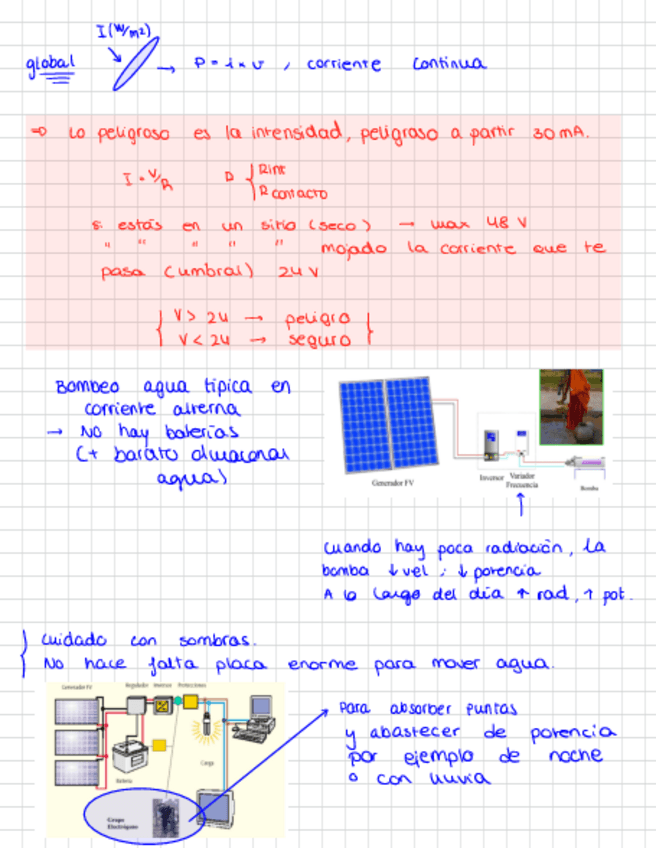 I (W/m2)
global → P = i x v , corriente continua
⇒ Lo peligroso es la intensidad, peligroso a partir 30 mA.
I = V/R R { Rint
R contacto
si estás en un sitio (seco) → max 48 V
" " " " " mojado la corriente que te
pasa (umbral) 24 V
{ V > 24 → peligro
V < 24 → seguro }
Bombeo agua típica en
corriente alterna
→ No hay baterías
(+ barato almacenar
agua)
Generador FV
Inversor Variador
Frecuencia
Bomba
Cuando hay poca radiación, la
bomba ↓ vel ; ↓ potencia
A lo largo del día ↑ rad, ↑ pot.
{ Cuidado con sombras.
No hace falta placa enorme para mover agua.
Generador FV Regulador Inversor Protecciones
Batería
Carga
Grupo
Electrógeno
Para absorber puntas
y abastecer de potencia
por ejemplo de noche
o con lluvia